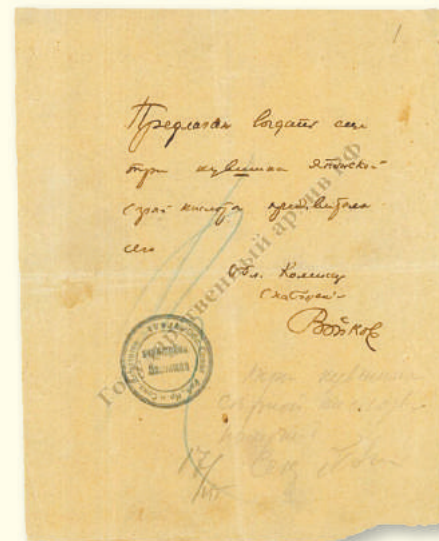 1
Предлагаю выдать сему
три кувшина Японской
серной кислоты предъявителю
сего
Обл. Комиссар
Снабжения
Войков
Государственный архив РФ
три кувшина
серной кислоты
получил
17/VII